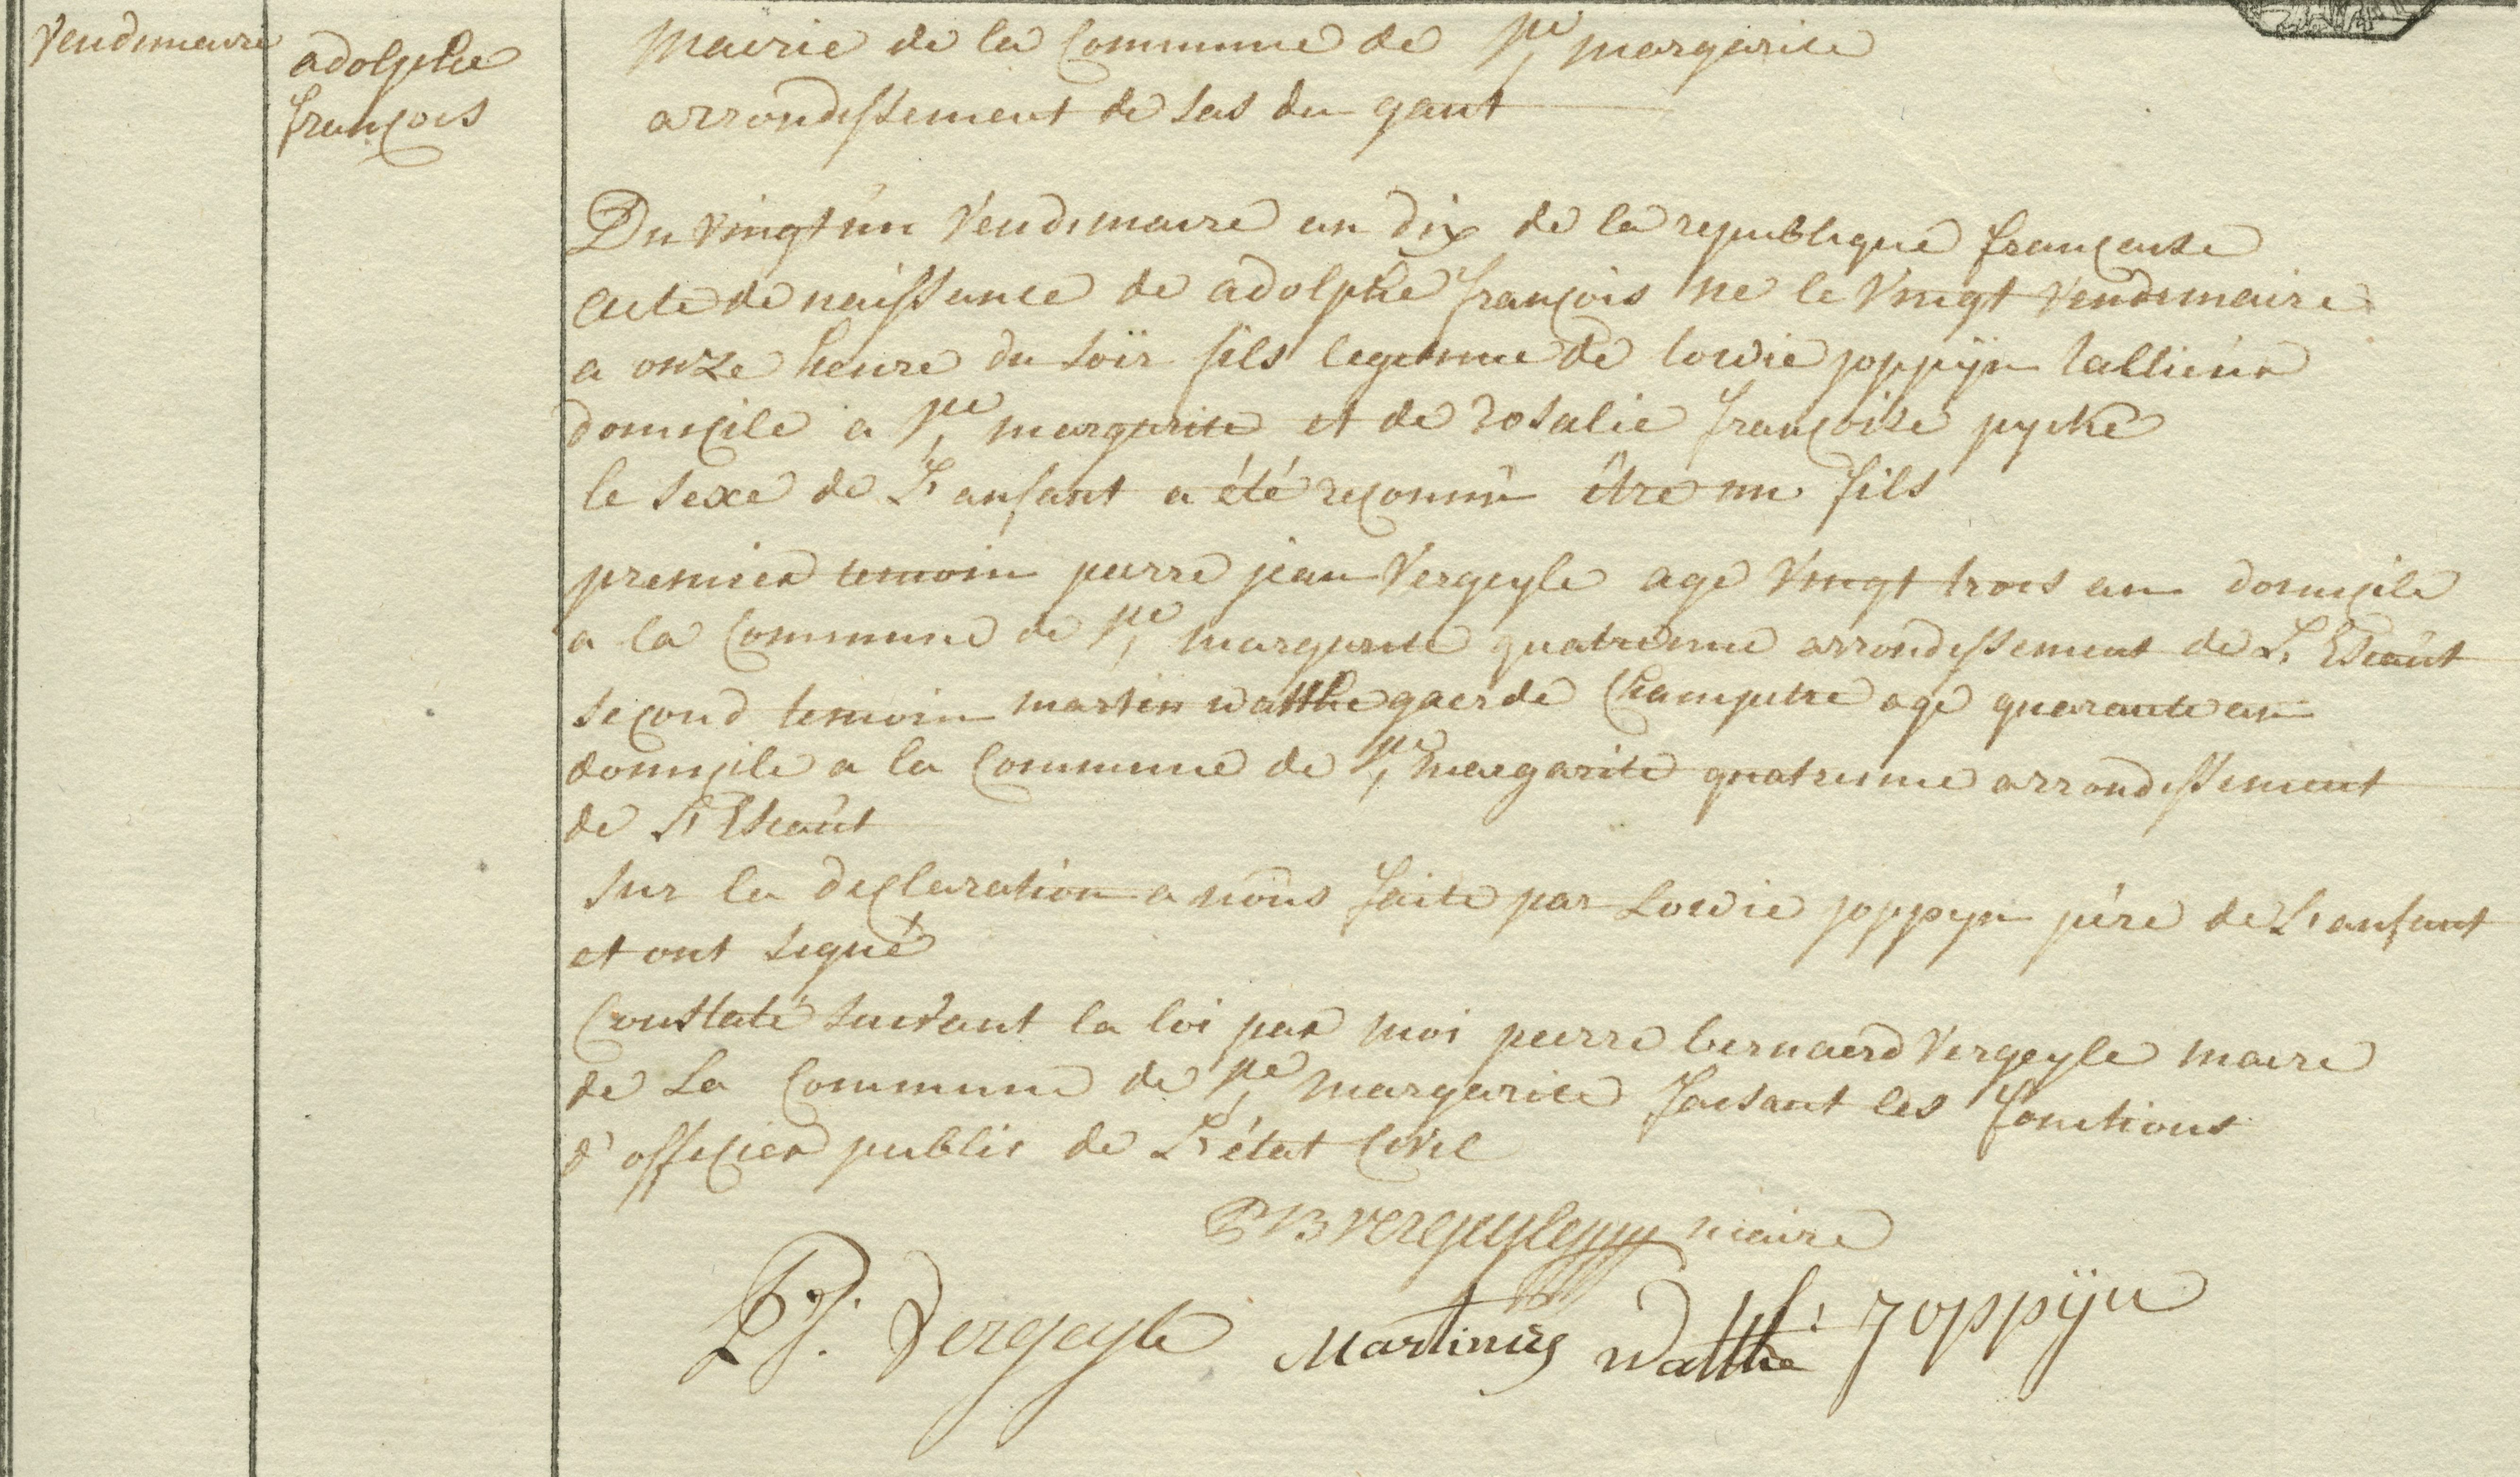 Vendemaire
adolphe
françois
Mairie de la Commune de Ste margarite
arrondissement de sas du gant
Du vingt un Vendemaire an dix de la republique françause
acte de naissance de adolphe françois né le vingt vendemaire
a onze heure du soir fils legitime de lowie joppijn
domicile a Ste margarite et de rosalie françoise pycke
le sexe de L'anfant a été reconnû être un fils
premier temoin pierre jean Vergeyle age vingt trois an domicile
a la Commune de Ste margarite quatrieme arrondissement de L'Escaut
second temoin martin watthe gaerde Champetre age quarante an
domicile a la Commune de Ste margarite quatrieme arrondissement
de L'Escaut
sur la declaration a nous faite par Lowie joppyn pére de L'anfant
et ont signé
Constaté suivant la loi par moi pierre bernaerd Vergeyle maire
de La Commune de Ste margarite faisant les fonctions
d'officier public de L'état Civil
PB Vergeyle maire
PJ. Vergeyle Martinus Watthé Joppijn